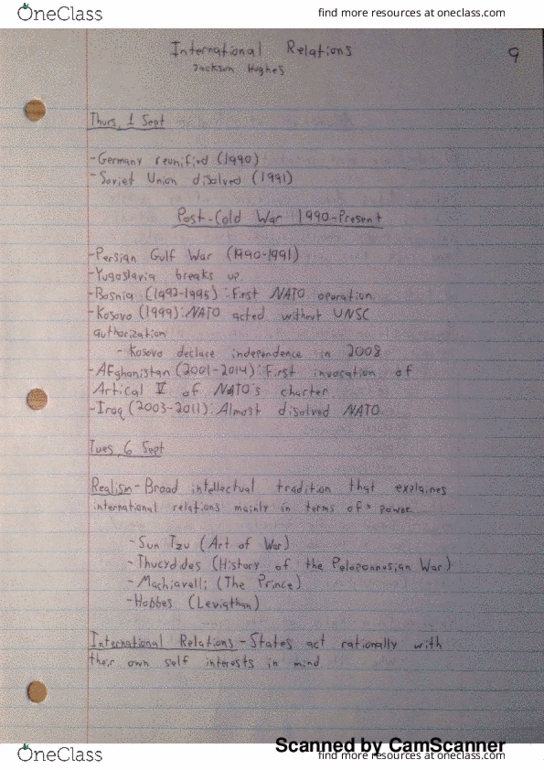 OneClass
find more resources at oneclass.com
International Relations
9
Jackson Hughes
Thurs, 1 Sept
-Germany reunified (1990)
-Soviet Union disolved (1991)
Post-Cold War 1990-Present
-Persian Gulf War (1990-1991)
-Yugoslavia breaks up
-Bosnia (1992-1995): First NATO operation
-Kosovo (1999): NATO acted without UNSC
authorization
-Kosovo declare independence in 2008
-Afghanistan (2001-2014): First invocation of
Artical V of NATO's charter
-Iraq (2003-2011): Almost disolved NATO
Tues, 6 Sept
Realism-Broad intellectual tradition that explaines
international relations mainly in terms of power
-Sun Tzu (Art of War)
-Thucydides (History of the Peloponnesian War)
-Machiavelli (The Prince)
-Hobbes (Leviathan)
International Relations-States act rationally with
their own self interests in mind
Scanned by CamScanner
OneClass
find more resources at oneclass.com